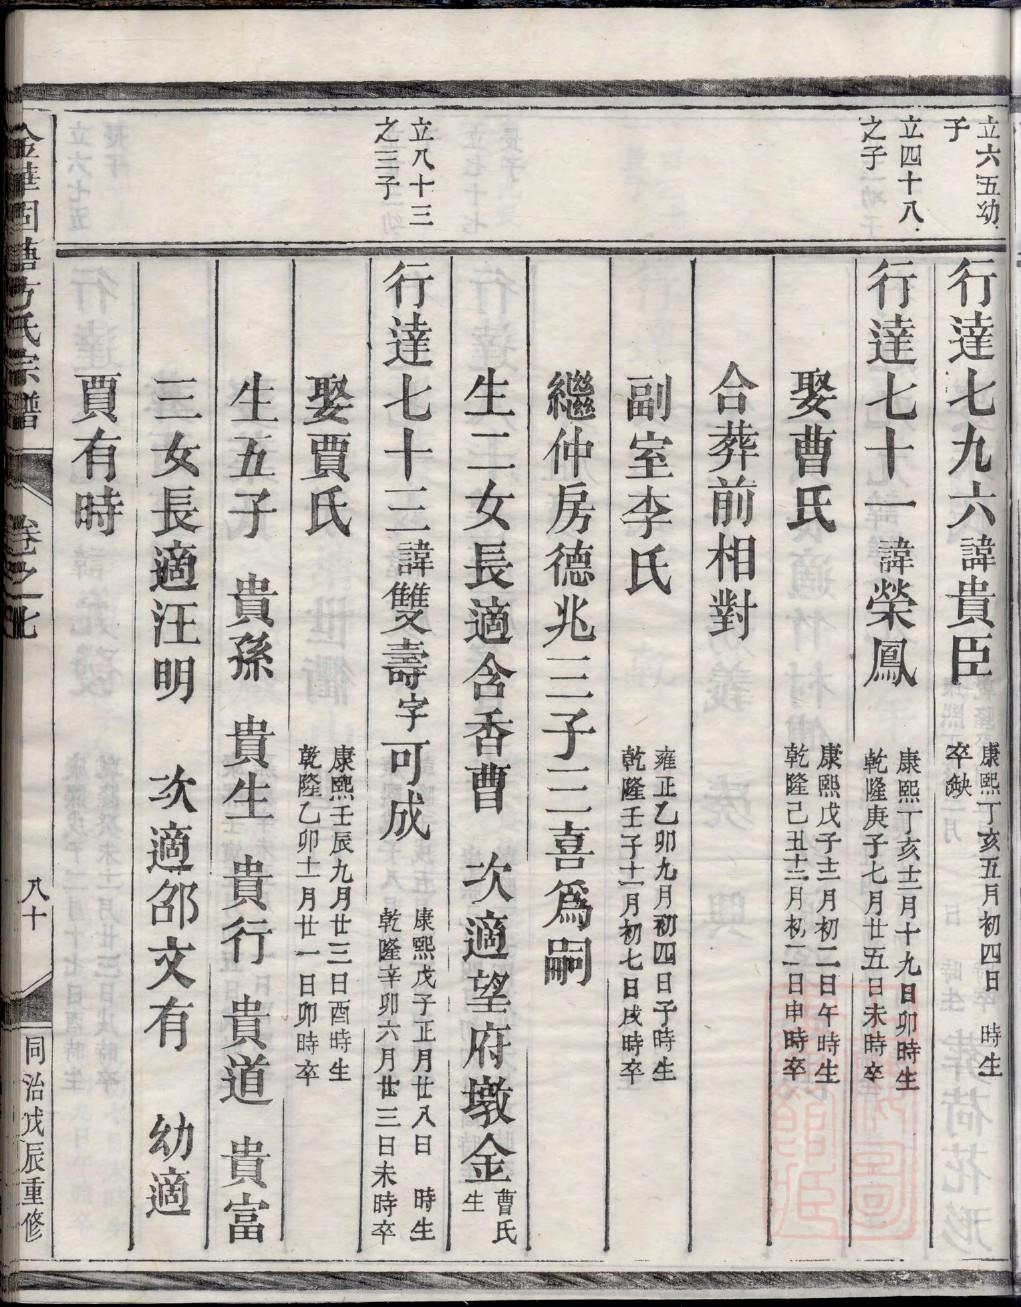 立六五幼
子
行達七九六諱貴臣
康熙丁亥五月初四日 時生
卒缺
立四十八
之子
行達七十一諱榮鳳
康熙丁亥十二月十九日卯時生
乾隆庚子七月廿五日未時卒
娶曹氏
康熙戊子十二月初二日午時生
乾隆己丑十二月初二日申時卒
合葬前相對
副室李氏
雍正乙卯九月初四日子時生
乾隆壬子十一月初七日戌時卒
繼仲房德兆三子三喜爲嗣
生二女長適含香曹 次適望府墩金
曹氏
生
立八十三
之三子
行達七十三諱雙壽字可成
康熙戊子正月廿八日 時生
乾隆辛卯六月廿三日未時卒
娶賈氏
康熙壬辰九月廿三日酉時生
乾隆乙卯十一月廿一日卯時卒
生五子 貴孫 貴生 貴行 貴道 貴富
三女長適汪明 次適邵文有 幼適
賈有時
金華固塘方氏宗譜
卷之七
八十
同治戊辰重修